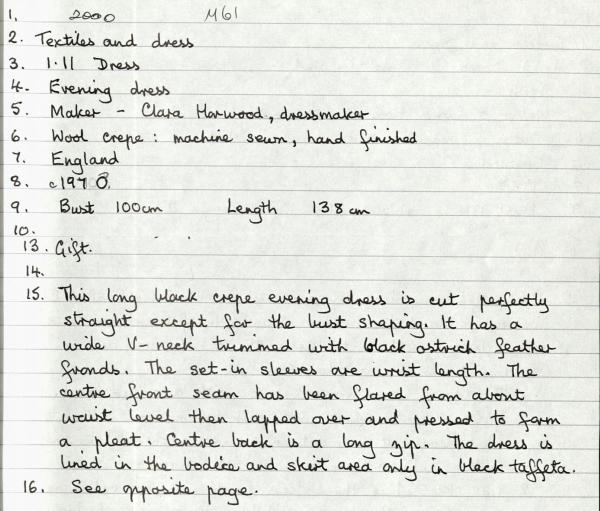 1. 2000 M61
2. Textiles and dress
3. 1.11 Dress
4. Evening dress
5. Maker - Clara Harwood, dressmaker
6. Wool crepe : machine sewn, hand finished
7. England
8. c1970.
9. Bust 100cm Length 138cm
10.
13. Gift.
14.
15. This long black crepe evening dress is cut perfectly
straight except for the bust shaping. It has a
wide V-neck trimmed with black ostrich feather
fronds. The set-in sleeves are wrist length. The
centre front seam has been flared from about
waist level then lapped over and pressed to form
a pleat. Centre back is a long zip. The dress is
lined in the bodice and skirt area only in black taffeta.
16. See opposite page.